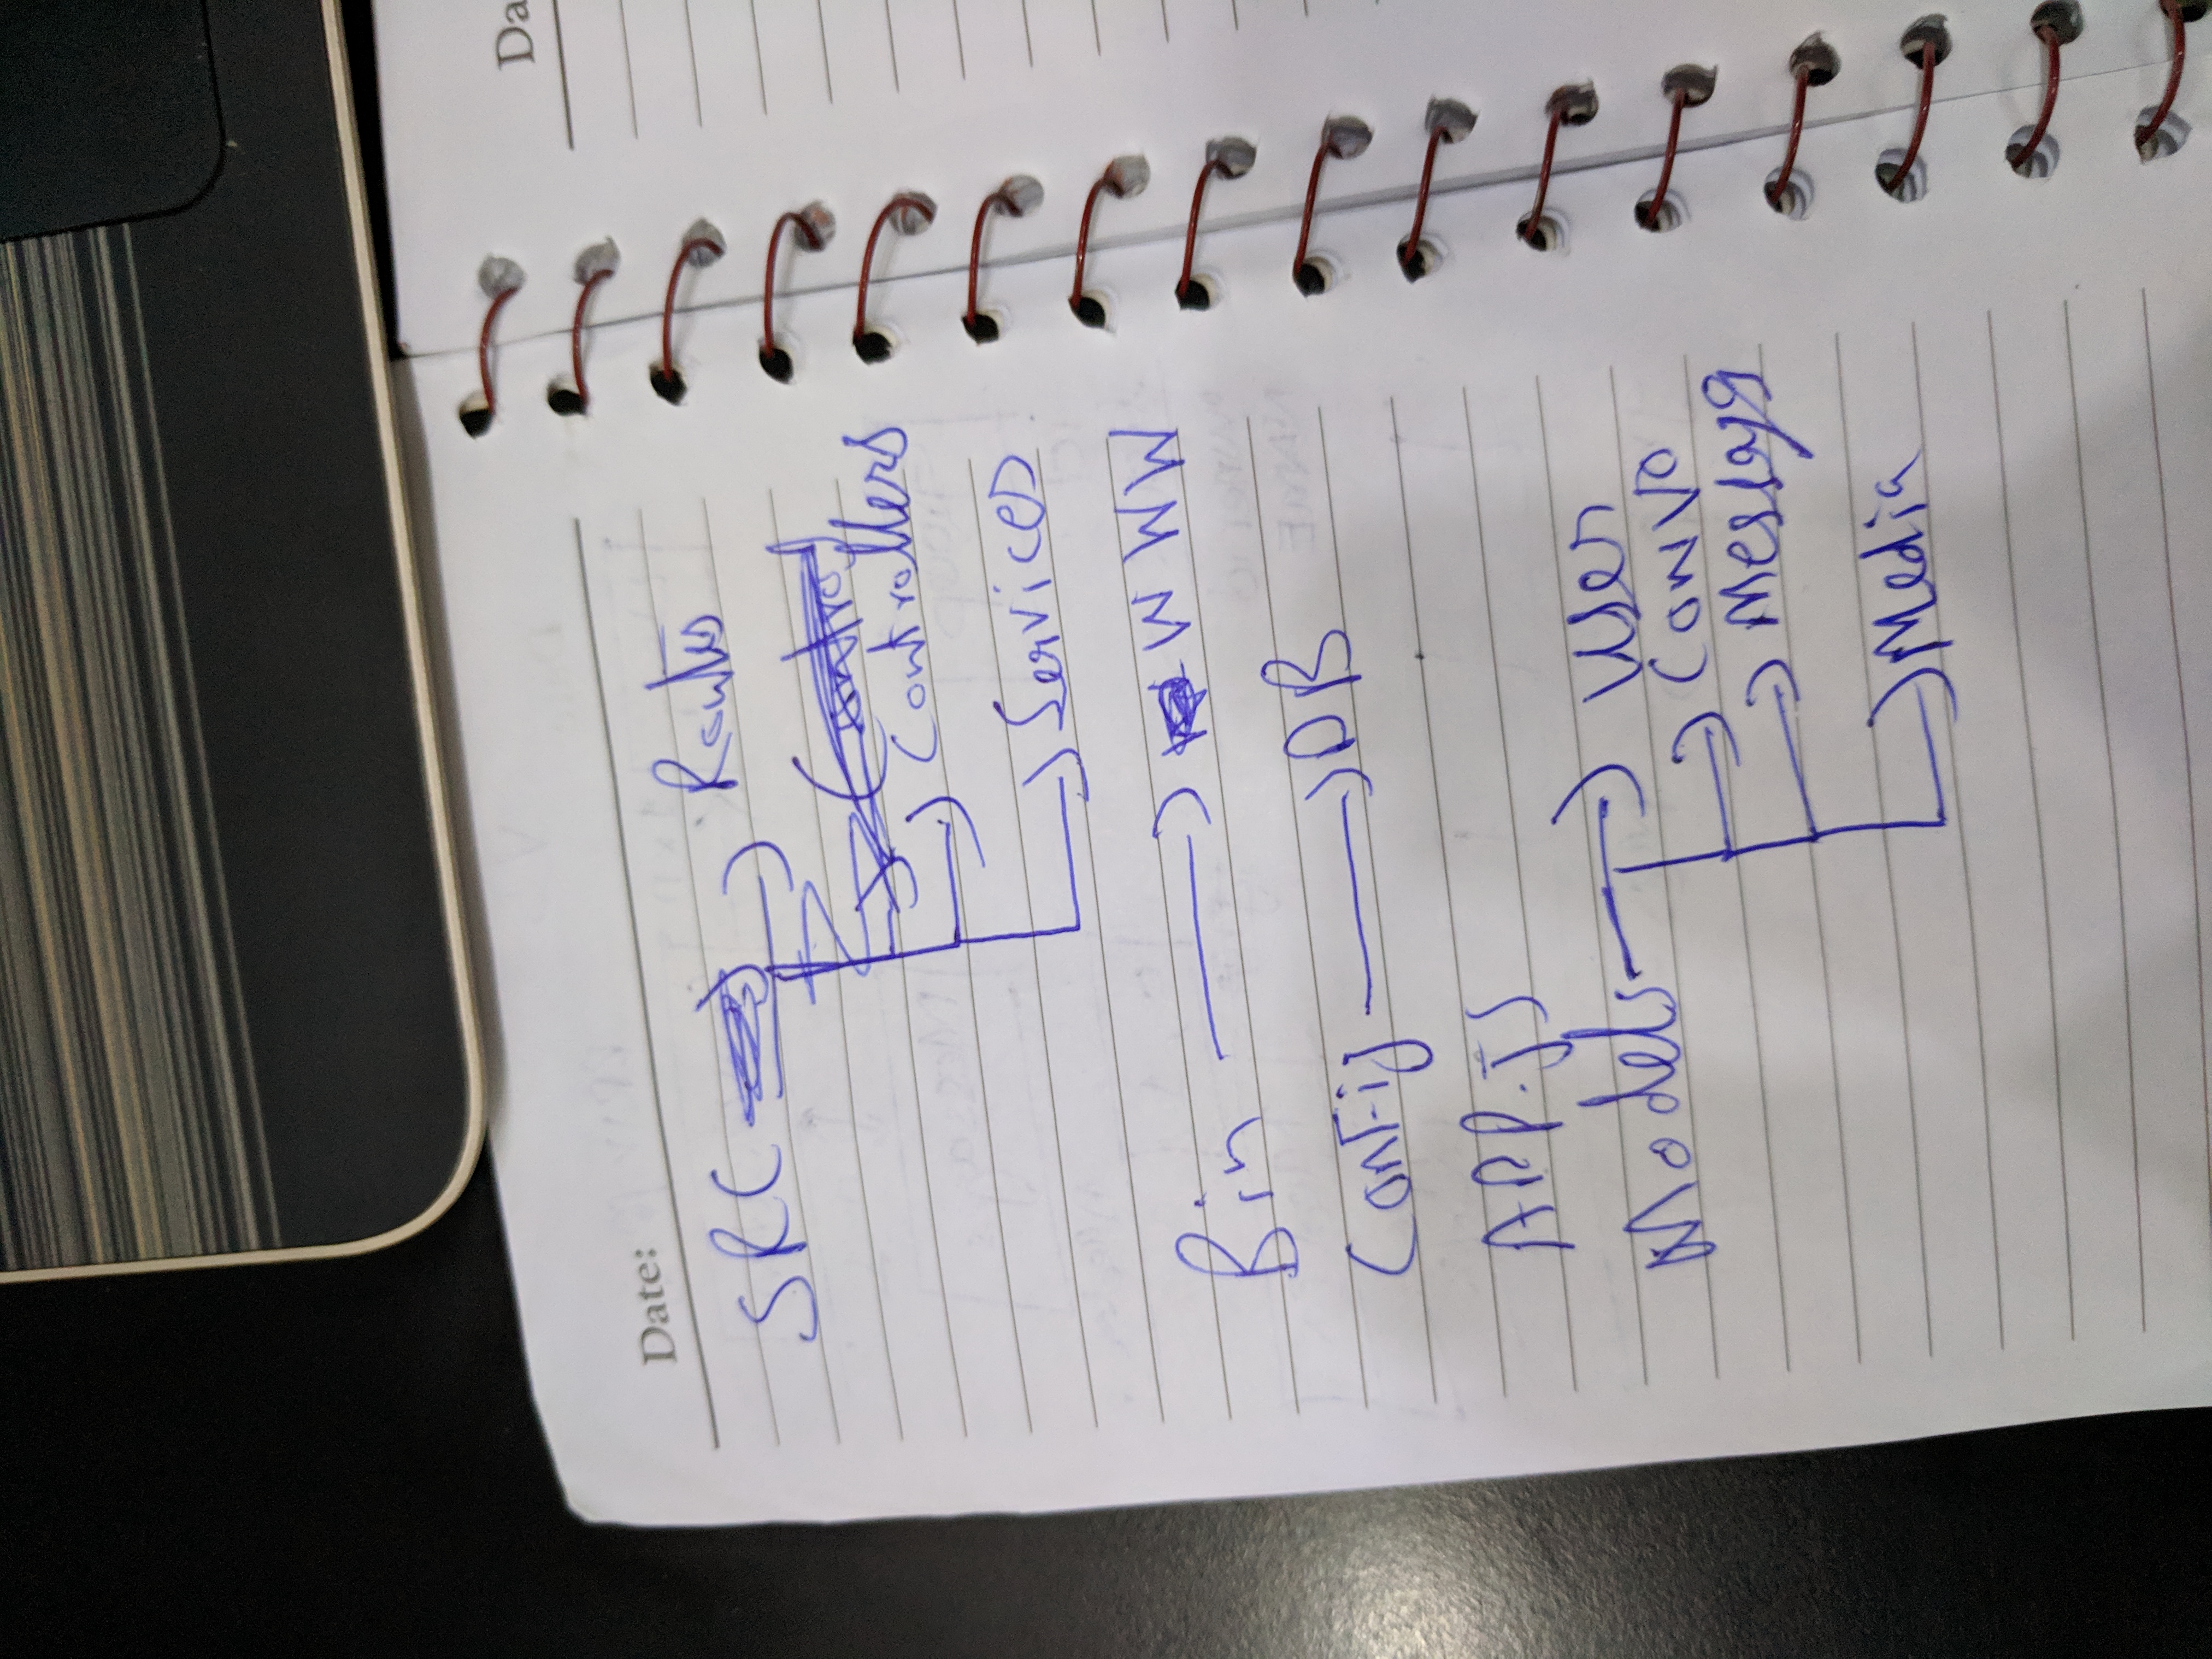 Da
Date:
SRC Routes
Controllers
Services
Bin W WW
Config DB
APP.js
Models User
Convo
Message
Media